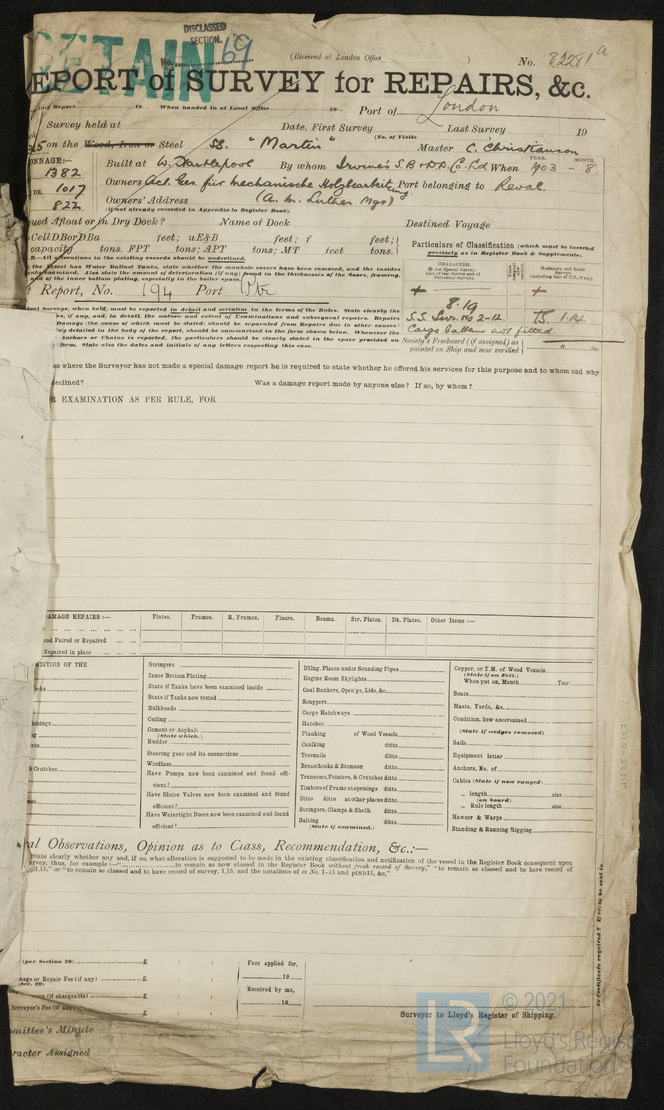 DISCLASSED
SECTION.
RETAIN
No. 69
(Received at London Office )
No. 82281a
EPORT of SURVEY for REPAIRS, &c.
Report 19 When handed in at Local Office 19 Port of London
Survey held at Date, First Survey Last Survey 19
(No. of Visits
on the Wood, Iron or Steel SS. "Martin" Master C. Christianson
ONNAGE:—
1382
1017
822
Built at W. Hartlepool By whom Irvine's S.B. & D.D. Co. Ld When 1903 - 8
YEAR. MONTH.
Owners Act. Ges. für mechanische Holzbearbeitg Port belonging to Reval
Owners' Address (A. M. Luther Mgs)
(if not already recorded in Appendix to Register Book).
yed Afloat or in Dry Dock? Name of Dock Destined Voyage
CellDBorDBa feet; uE&B feet; f feet;
capacity tons. FPT tons; APT tons; MT feet tons.
Particulars of Classification (which must be inserted
precisely as in Register Book & Supplements).
B.—All alterations in the existing records should be underlined.
the vessel has Water Ballast Tanks, state whether the manhole covers have been removed, and the insides
CHARACTER.
t Report, No. 194 Port
8.19
S.S. No 2-12. BS 1.14
Cargo battens not fitted
Society's Freeboard (if assigned) as
painted on Ship and now verified
ent Surveys, when held, must be reported in detail and seriatim in the terms of the Rules. State clearly the
form. State also the dates and initials of any letters respecting this case.
es where the Surveyor has not made a special damage report he is required to state whether he offered his services for this purpose and to whom and why
eclined? Was a damage report made by anyone else? If so, by whom?
R EXAMINATION AS PER RULE, FOR
AMAGE REPAIRS:— Plates. Frames. R. Frames. Floors. Beams. Str. Plates. Dk. Plates. Other Items:—
and Faired or Repaired
Repaired in place
NDITION OF THE
Crutches
Stringers
Inner Bottom Plating
State if Tanks have been examined inside
State if Tanks now tested
Bulkheads
Ceiling
Cement or Asphalt
(State which.)
Rudder
Steering gear and its connections
Windlass
Have Pumps now been examined and found effi-
cient?
Have Sluice Valves now been examined and found
efficient?
Have Watertight Doors now been examined and found
efficient?
Dblng. Plates under Sounding Pipes
Engine Room Skylights
Coal Bunkers, Open'gs, Lids, &c.
Scuppers
Cargo Hatchways
Hatches
Planking of Wood Vessels
Caulking ditto
Treenails ditto
Breasthooks & Stemson ditto
Transoms, Pointers, & Crutches ditto
Timbers of Frame at openings ditto
Ditto ditto at other places ditto
Stringers, Clamps & Shelfs ditto
Salting ditto
(State if examined.)
Copper, or Y.M. of Wood Vessels
(State if on Felt.)
When put on, Month Year
Boats
Masts, Yards, &c.
Condition, how ascertained
(State if wedges removed)
Sails
Equipment letter
Anchors, No. of
Cables (State if now ranged)
„ length size
(on board)
„ Rule length size
Hawser & Warps
Standing & Running Rigging
al Observations, Opinion as to Class, Recommendation, &c.:—
State clearly whether any and, if so, what alteration is suggested to be made in the existing classification and notification of the vessel in the Register Book consequent upon
urvey, thus, for example:—"to remain as now classed in the Register Book without fresh record of Survey," "to remain as classed and to have record of
1,15," or "to remain as classed and to have record of survey, 1,15, and the notations of ss No. 1-15 and ptND15, &c."
(per Section 28) £
age or Repair Fee (if any) £
(if chargeable) £
Surveyor's Fee (if any) £
Fees applied for,
19
Received by me,
19
Surveyor to Lloyd's Register of Shipping.
ommittee's Minute
racter Assigned
LR
© 2021
Lloyd's Register
Foundation